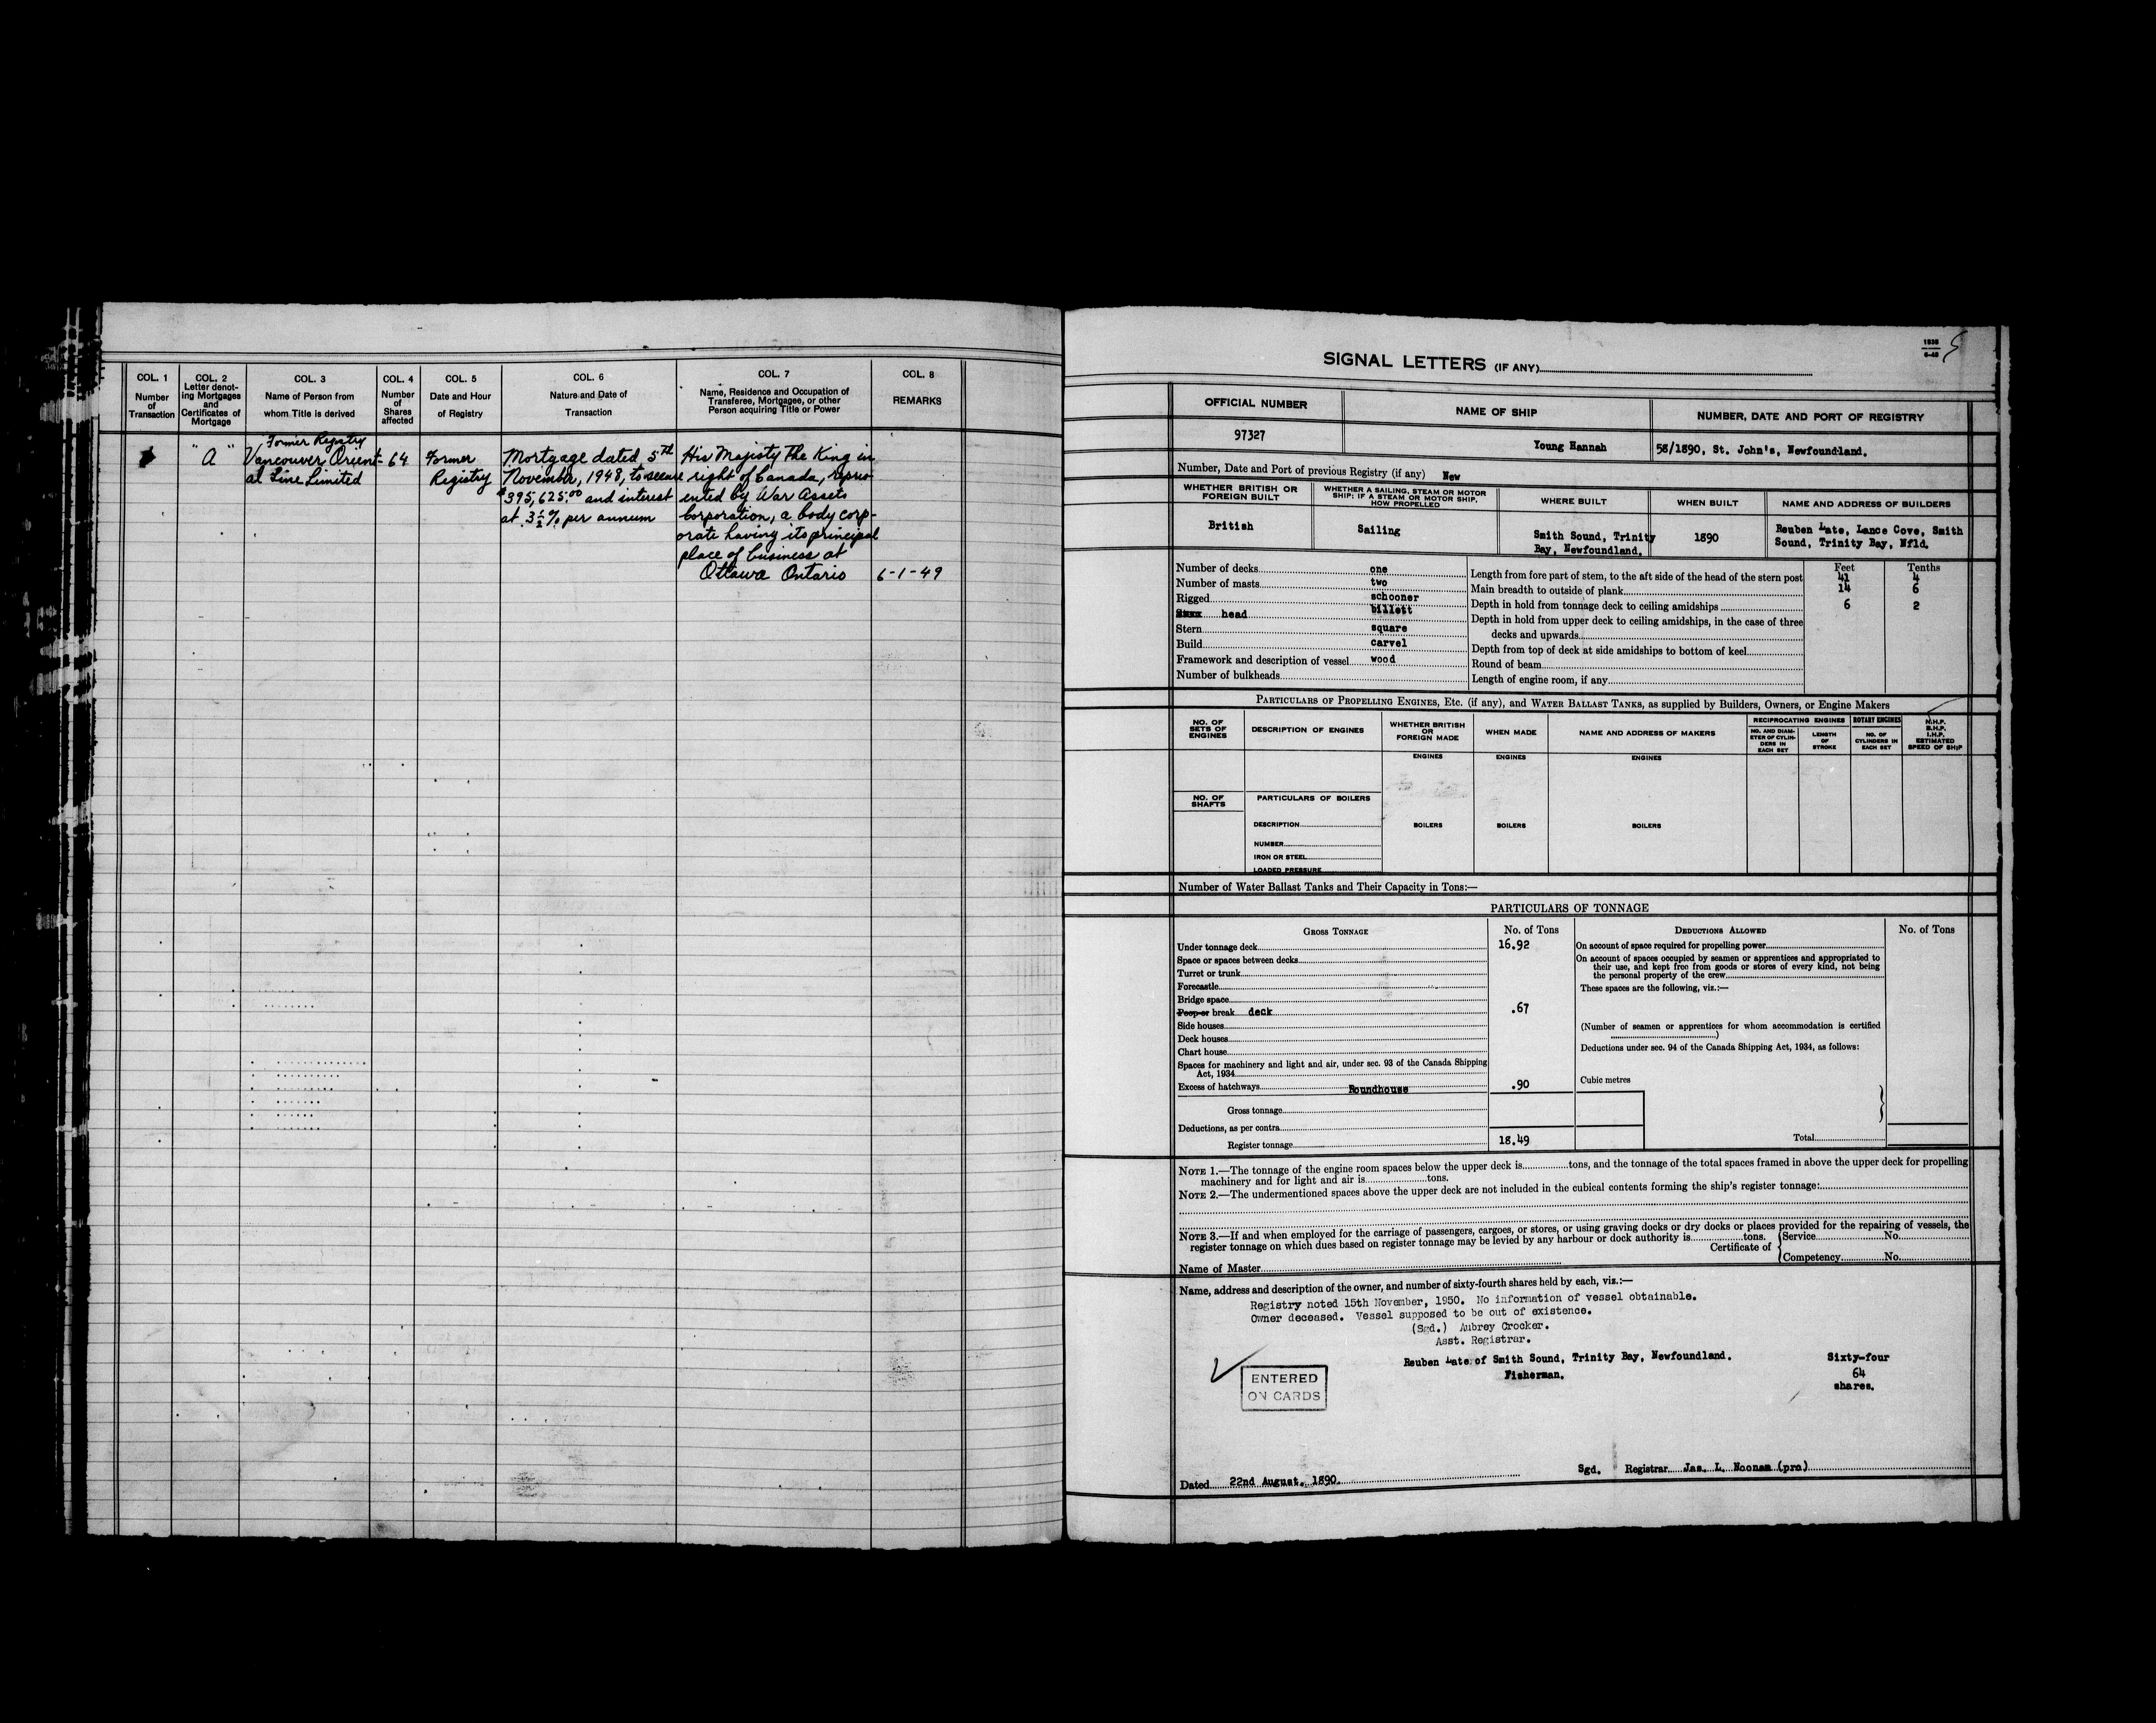 COL. 1
Number
of
Transaction
COL. 2
Letter denot-
ing Mortgages
and
Certificates of
Mortgage
COL. 3
Name of Person from
whom Title is derived
COL. 4
Number
of
Shares
affected
COL. 5
Date and Hour
of Registry
COL. 6
Nature and Date of
Transaction
COL. 7
Name, Residence and Occupation of
Transferee, Mortgagee, or other
Person acquiring Title or Power
COL. 8
REMARKS
"A"
Former Registry
Vancouver Orient-
al Line Limited
64
Former
Registry
Mortgage dated 5th
November, 1948, to secure
$395,625.00 and interest
at 3½% per annum
His Majesty The King in
right of Canada, repres-
ented by War Assets
Corporation, a body corp-
orate having its principal
place of business at
Ottawa Ontario
6-1-49
1838
6-48
SIGNAL LETTERS (IF ANY)
OFFICIAL NUMBER
NAME OF SHIP
NUMBER, DATE AND PORT OF REGISTRY
97327
Young Hannah
58/1890, St. John's, Newfoundland.
Number, Date and Port of previous Registry (if any) New
WHETHER BRITISH OR
FOREIGN BUILT
WHETHER A SAILING, STEAM OR MOTOR
SHIP; IF A STEAM OR MOTOR SHIP,
HOW PROPELLED
WHERE BUILT
WHEN BUILT
NAME AND ADDRESS OF BUILDERS
British
Sailing
Smith Sound, Trinity
Bay, Newfoundland.
1890
Reuben Late, Lance Cove, Smith
Sound, Trinity Bay, Nfld.
Number of decks one
Number of masts two
Rigged schooner
head billett
Stern square
Build carvel
Framework and description of vessel wood
Number of bulkheads
Feet Tenths
Length from fore part of stem, to the aft side of the head of the stern post 41 4
Main breadth to outside of plank 14 6
Depth in hold from tonnage deck to ceiling amidships 6 2
Depth in hold from upper deck to ceiling amidships, in the case of three
decks and upwards
Depth from top of deck at side amidships to bottom of keel
Round of beam
Length of engine room, if any
PARTICULARS OF PROPELLING ENGINES, Etc. (if any), and WATER BALLAST TANKS, as supplied by Builders, Owners, or Engine Makers
NO. OF
SETS OF
ENGINES
DESCRIPTION OF ENGINES
WHETHER BRITISH
OR
FOREIGN MADE
WHEN MADE
NAME AND ADDRESS OF MAKERS
RECIPROCATING ENGINES
NO. AND DIAM-
ETER OF CYLIN-
DERS IN
EACH SET
LENGTH
OF
STROKE
ROTARY ENGINES
NO. OF
CYLINDERS IN
EACH SET
N.H.P.
B.H.P.
I.H.P.
ESTIMATED
SPEED OF SHIP
ENGINES
ENGINES
ENGINES
NO. OF
SHAFTS
PARTICULARS OF BOILERS
DESCRIPTION
BOILERS
BOILERS
BOILERS
NUMBER
IRON OR STEEL
LOADED PRESSURE
Number of Water Ballast Tanks and Their Capacity in Tons:—
PARTICULARS OF TONNAGE
GROSS TONNAGE
No. of Tons
Under tonnage deck 16.92
Space or spaces between decks
Turret or trunk
Forecastle
Bridge space
Poop or break deck .67
Side houses
Deck houses
Chart house
Spaces for machinery and light and air, under sec. 93 of the Canada Shipping
Act, 1934
Excess of hatchways Roundhouse .90
Gross tonnage
Deductions, as per contra
Register tonnage 18.49
DEDUCTIONS ALLOWED
No. of Tons
On account of space required for propelling power
On account of spaces occupied by seamen or apprentices and appropriated to
their use, and kept free from goods or stores of every kind, not being
the personal property of the crew
These spaces are the following, viz.:—
(Number of seamen or apprentices for whom accommodation is certified
)
Deductions under sec. 94 of the Canada Shipping Act, 1934, as follows:
Cubic metres
Total
NOTE 1.—The tonnage of the engine room spaces below the upper deck is tons, and the tonnage of the total spaces framed in above the upper deck for propelling
machinery and for light and air is tons.
NOTE 2.—The undermentioned spaces above the upper deck are not included in the cubical contents forming the ship's register tonnage:
NOTE 3.—If and when employed for the carriage of passengers, cargoes, or stores, or using graving docks or dry docks or places provided for the repairing of vessels, the
register tonnage on which dues based on register tonnage may be levied by any harbour or dock authority is tons.
Certificate of { Service No.
Competency No.
Name of Master
Name, address and description of the owner, and number of sixty-fourth shares held by each, viz.:—
Registry noted 15th November, 1950. No information of vessel obtainable.
Owner deceased. Vessel supposed to be out of existence.
(Sgd.) Aubrey Crocker.
Asst. Registrar.
Reuben Late of Smith Sound, Trinity Bay, Newfoundland.
Fisherman.
Sixty-four
64
shares.
ENTERED
ON CARDS
Dated 22nd August, 1890.
Sgd. Registrar Jas. L. Noonan (pro)